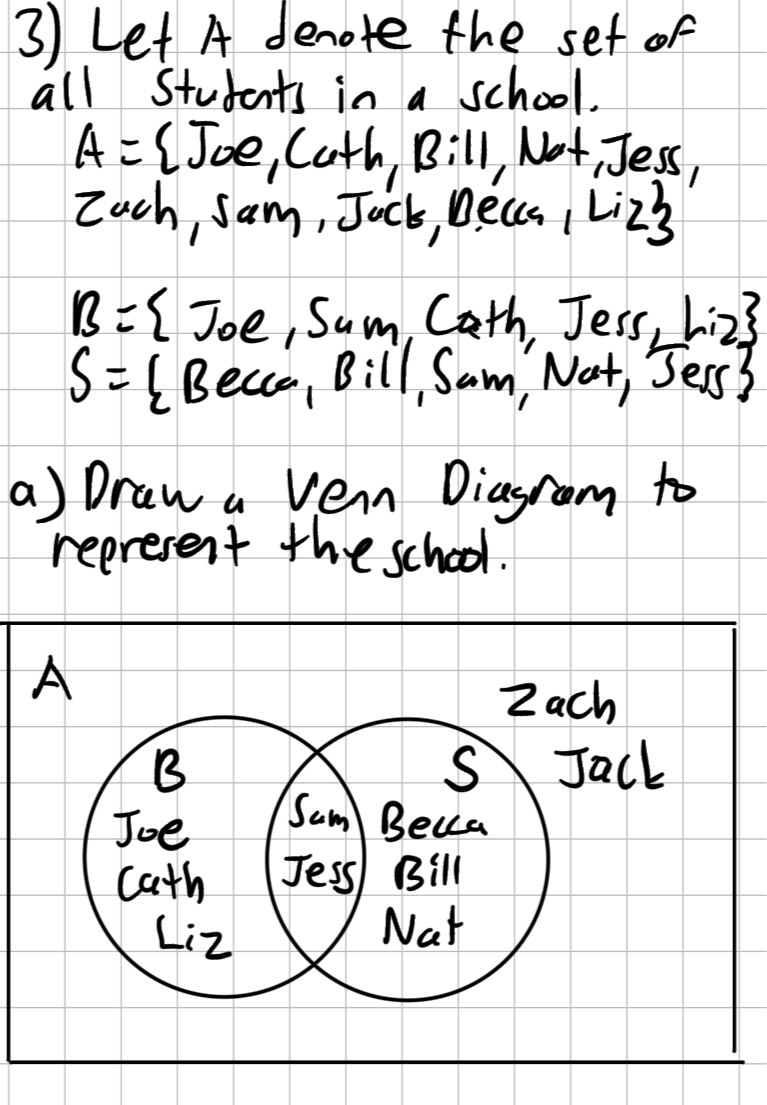 3) Let A denote the set of
all Students in a school.
A = {Joe, Cath, Bill, Nat, Jess,
Zach, Sam, Jack, Becca, Liz}
B = { Joe, Sam, Cath, Jess, Liz}
S = { Becca, Bill, Sam, Nat, Jess}
a) Draw a Venn Diagram to
represent the school.
A
Zach
Jack
B
S
Joe
Cath
Liz
Sam
Jess
Becca
Bill
Nat